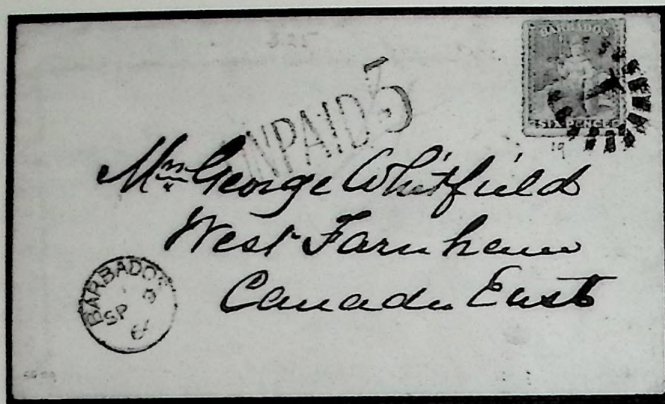 BARBADOS
SIX PENCE
UNPAID 5
Mrs George Whitfield
West Farnham
Canada East
BARBADOS
SP 3